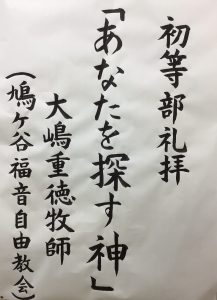 初等部礼拝
「あなたを探す神」
大嶋重徳牧師
（鳩ヶ谷福音自由教会）